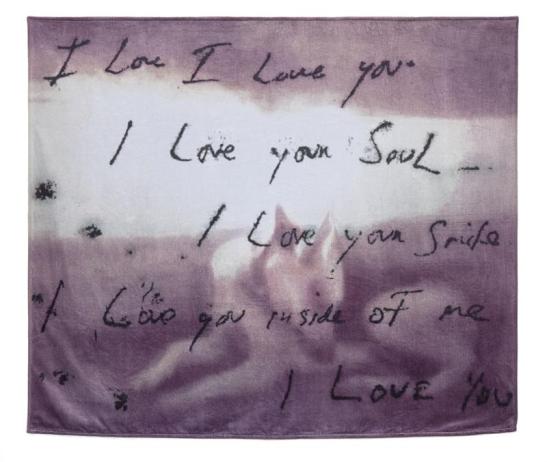 I Love I Love you.
I Love your Soul_
I Love your Smile
I Love you inside of me
I Love You